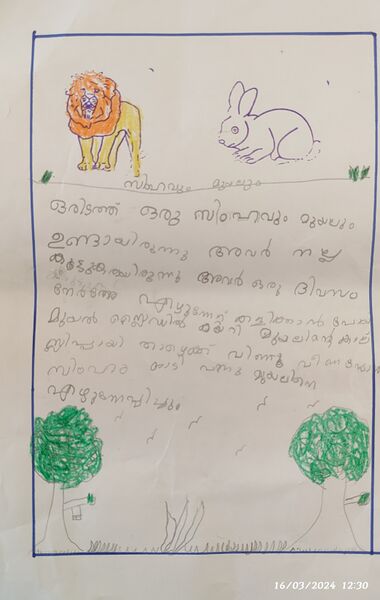 സിംഹവും മുയലും
ഒരിടത്ത് ഒരു സിംഹവും മുയലും
ഉണ്ടായിരുന്നു അവർ നല്ല
കൂട്ടുകാരായിരുന്നു അവർ ഒരു ദിവസം
എഴുന്നേറ്റ് കളിക്കാൻ പോയ
മുയൽ സ്ലൈഡിൽ കയറി മുയലിന്റെ കാല്
സ്ലിപ്പായി താഴെക്ക് വീണു
സിംഹം ഓടി വന്നു മുയലിനെ
എഴുന്നേപ്പിച്ചു
16/03/2024 12:30